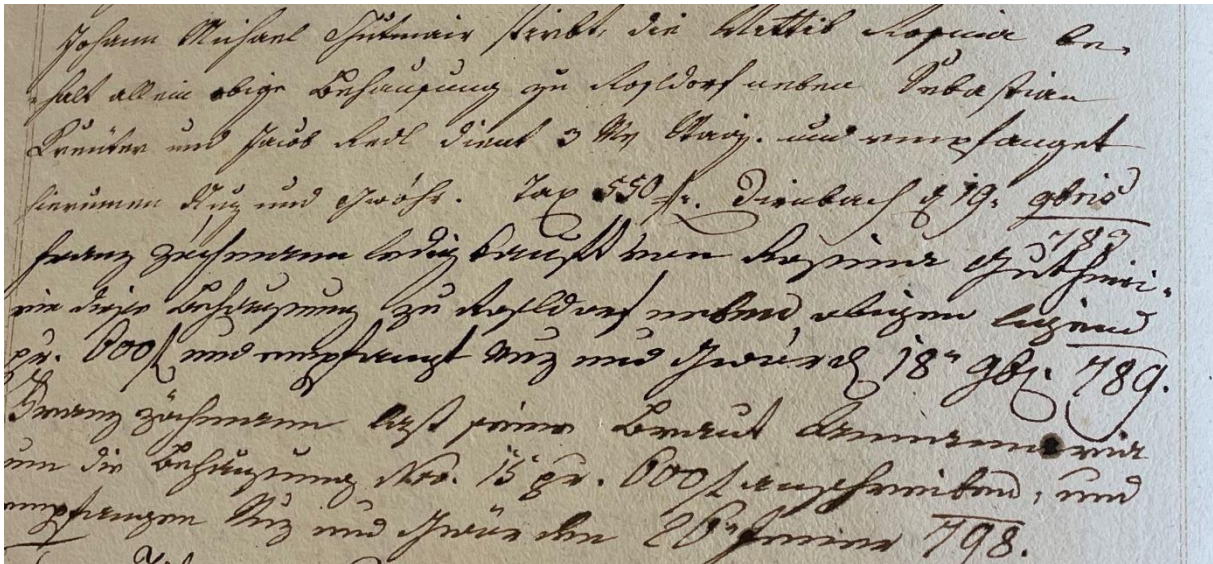 Johann Michael Gutmair stirbt, die Wittib Rosina be-
halt allein obige Behausung zu Rosldorf neben Sebastian
Kreuter und Jacob Redl dient 3 Mz Waiz. und empfanget
hierumen Nuz und Gwöhr. Tax 550 f. Dienbach d 19. 9bris
789
Franz Zöchmann ledig kauft von Rosina Guthmei-
rin diese Behausung zu Rosldorf neben obigen ligend
pr. 600 f und empfangt Nuz und Gwör d 18n 9b. 789.
Franz Zöchmann last seine Braut Annamaria
um die Behausung Nro. 15 pr. 600 f anschreiben, und
empfangen Nuz und Gwör den 26n Jenner 798.